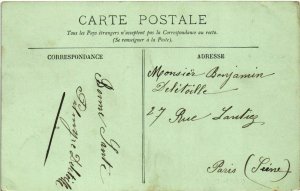 CARTE POSTALE
Tous les Pays étrangers n'acceptent pas la Correspondance au recto.
(Se renseigner à la Poste).
CORRESPONDANCE
ADRESSE
Bonne Santé
Monsieur Benjamin
27 Rue
Paris (Seine)